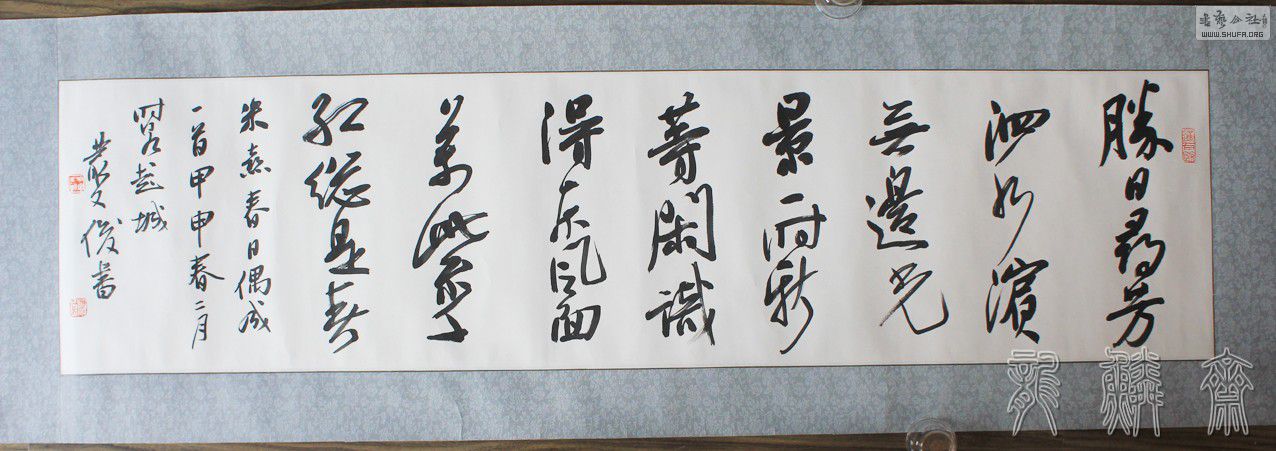 勝日尋芳
泗水濱
無邊光
景一時新
等閑識
得東風面
萬紫千
紅總是春
朱熹春日偶成
一首甲申春二月
城
叢文俊書
書藝公社
WWW.SHUFA.ORG
龍麟齋